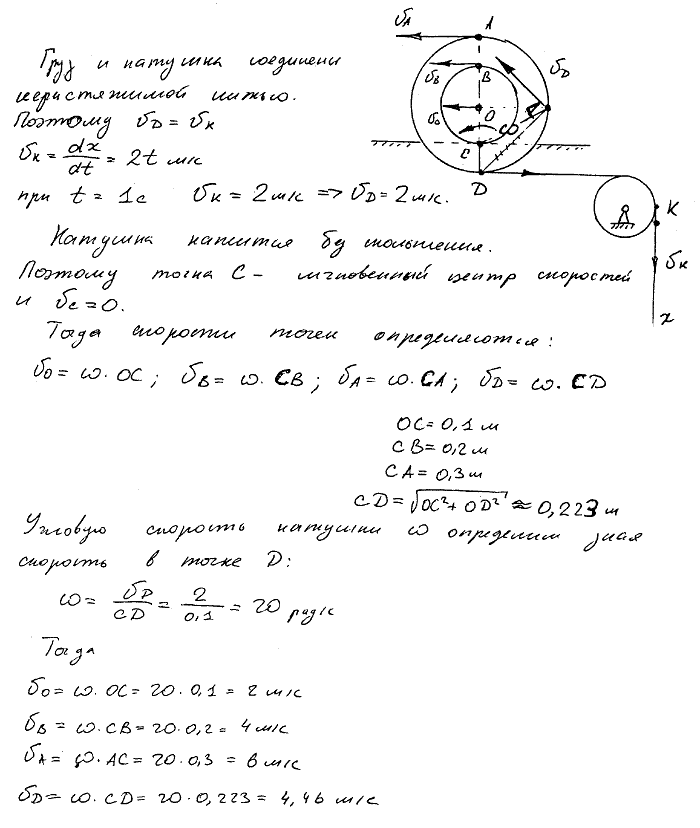 Груз и катушка соединены
нерастяжимой нитью.
Поэтому υD = υK
υK = dx/dt = 2t м/с
при t = 1с υK = 2м/с => υD = 2м/с.
Катушка катится без скольжения.
Поэтому точка C – мгновенный центр скоростей
и υC = 0.
Тогда скорости точек определяются:
υO = ω·OC; υB = ω·CB; υA = ω·CA; υD = ω·CD
OC = 0,1 м
CB = 0,2 м
CA = 0,3 м
CD = √(OC² + OD²) ≈ 0,223 м
Угловую скорость катушки ω определим зная
скорость в точке D:
ω = υD/CD = 2/0,1 = 20 рад/с
Тогда
υO = ω·OC = 20·0,1 = 2 м/с
υB = ω·CB = 20·0,2 = 4 м/с
υA = ω·AC = 20·0,3 = 6 м/с
υD = ω·CD = 20·0,223 = 4,46 м/с
υA
A
υB
B
υD
D
υO
O
ω
C
D
K
υK
x